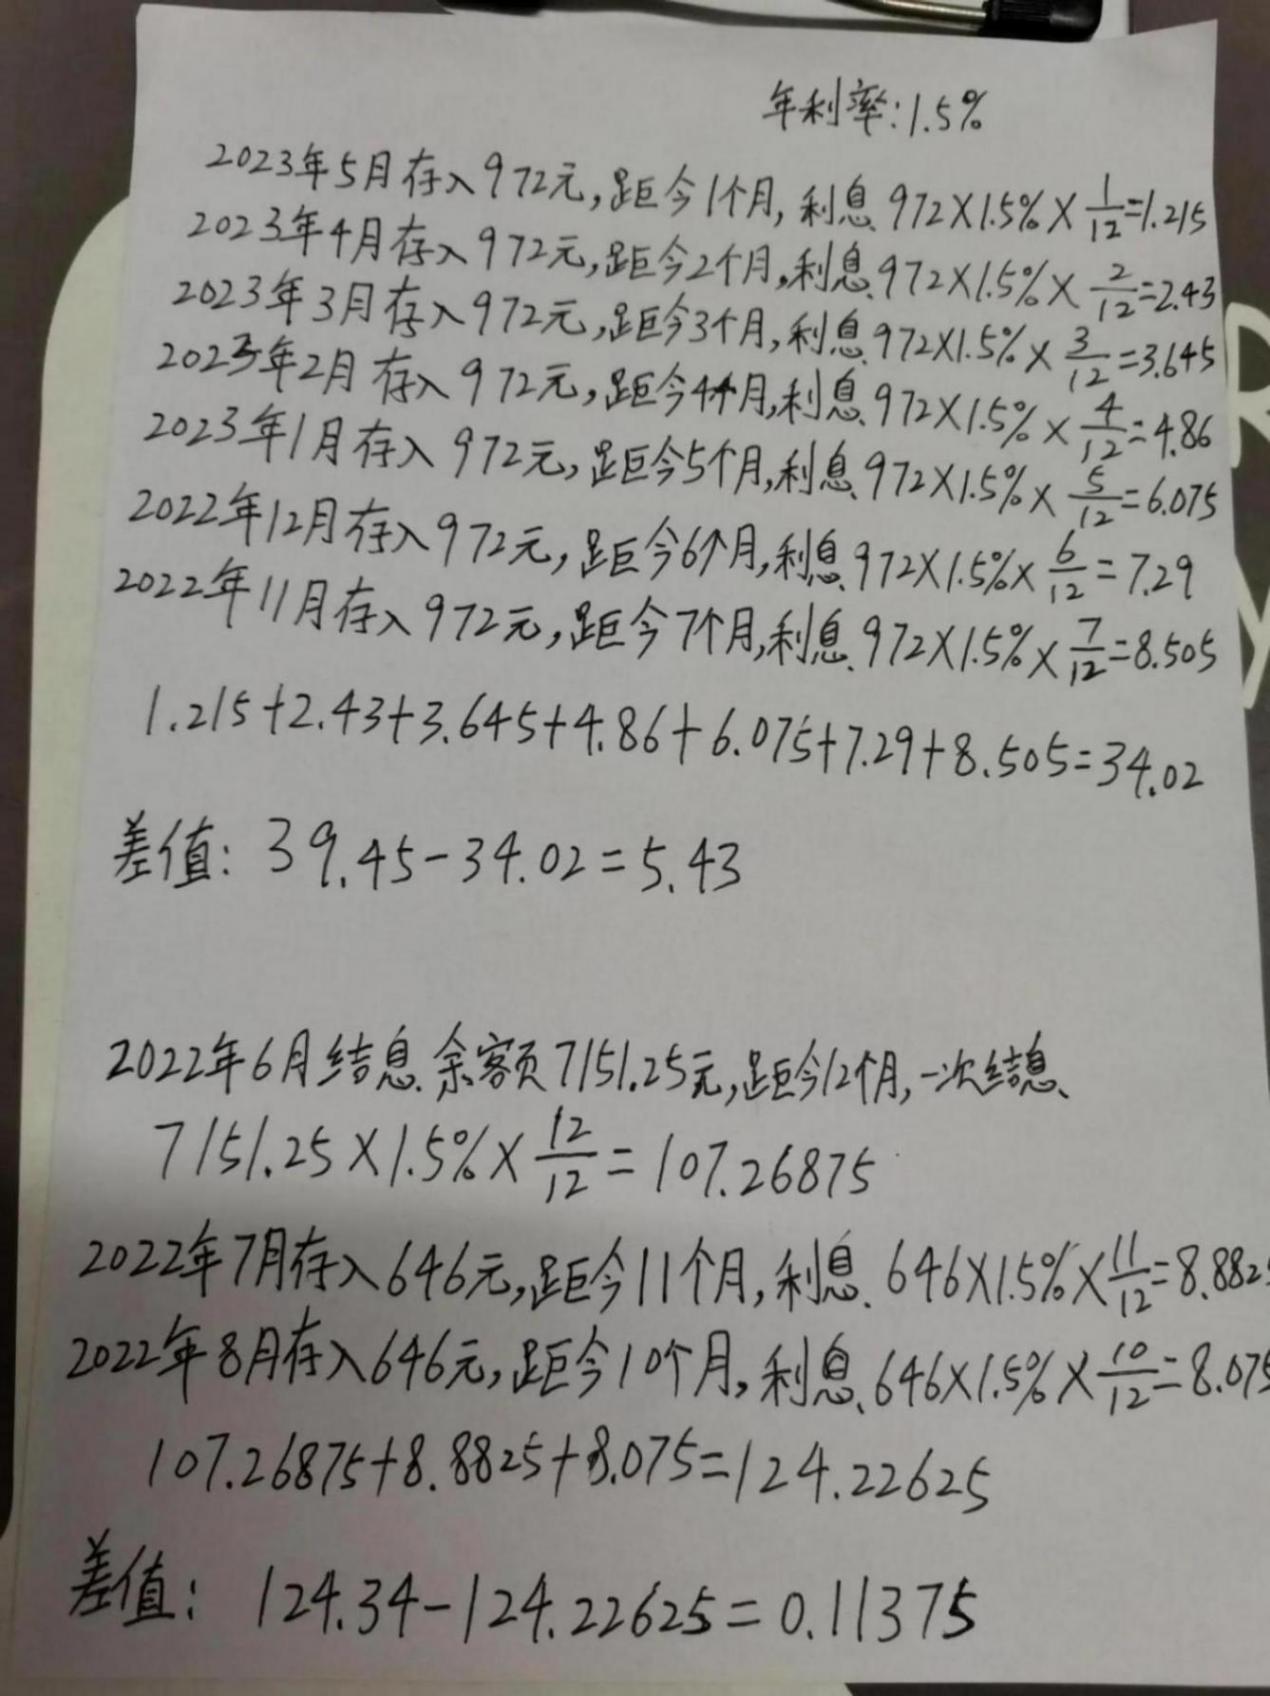 年利率:1.5%
2023年5月存入972元,距今1个月,利息972×1.5%×1/12=1.215
2023年4月存入972元,距今2个月,利息972×1.5%×2/12=2.43
2023年3月存入972元,距今3个月,利息972×1.5%×3/12=3.645
2023年2月存入972元,距今4个月,利息972×1.5%×4/12=4.86
2023年1月存入972元,距今5个月,利息972×1.5%×5/12=6.075
2022年12月存入972元,距今6个月,利息972×1.5%×6/12=7.29
2022年11月存入972元,距今7个月,利息972×1.5%×7/12=8.505
1.215+2.43+3.645+4.86+6.075+7.29+8.505=34.02
差值: 39.45-34.02=5.43
2022年6月结息余额7151.25元,距今12个月,一次结息
7151.25×1.5%×12/12=107.26875
2022年7月存入646元,距今11个月,利息646×1.5%×11/12=8.882
2022年8月存入646元,距今10个月,利息646×1.5%×10/12=8.075
107.26875+8.8825+8.075=124.22625
差值: 124.34-124.22625=0.11375